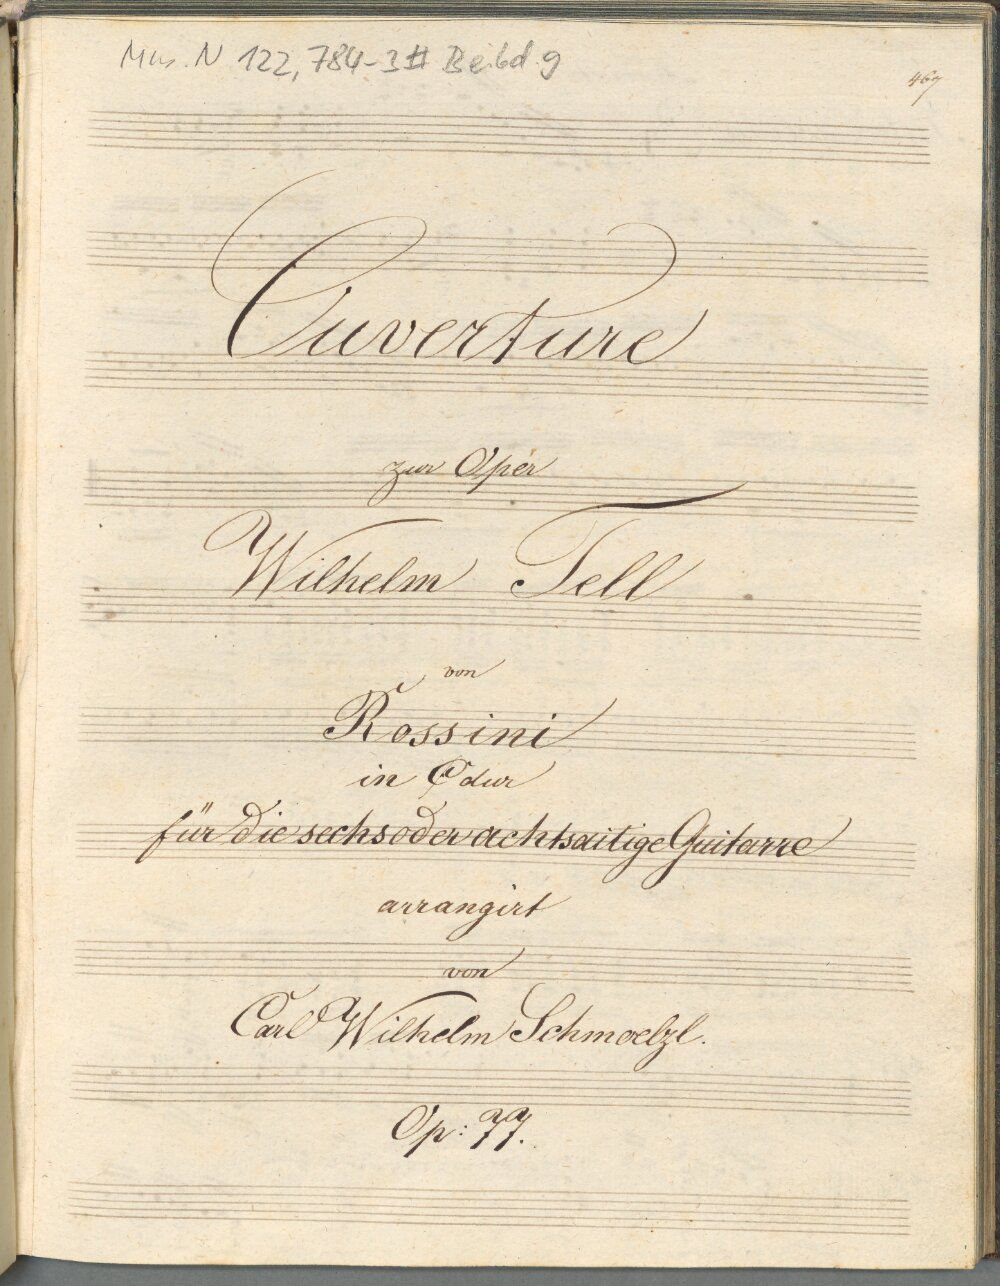 Mus. N 122,784-3# Beibd. 9
467
Ouverture
zur Oper
Wilhelm Tell
von
Rossini
in C dur
für die sechs oder achtsaitige Guitarre
arrangirt
von
Carl Wilhelm Schmoelzl.
Op: 77.